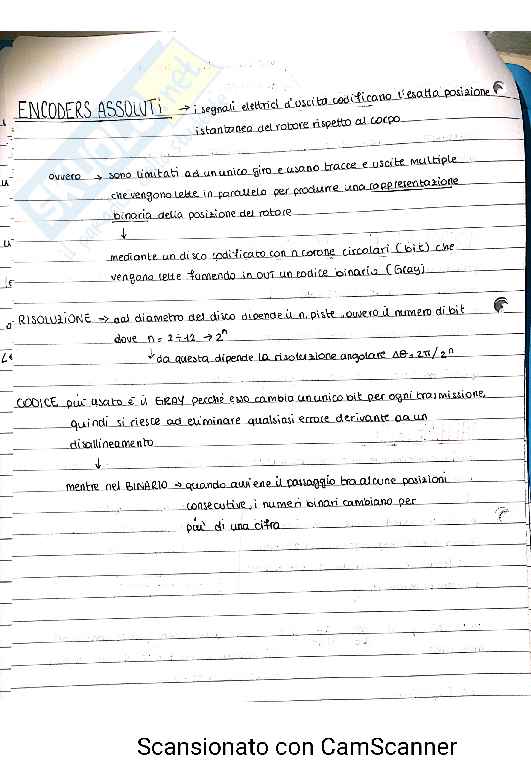 ENCODERS ASSOLUTI → i segnali elettrici d'uscita codificano l'esatta posizione
istantanea del rotore rispetto al corpo
ovvero → sono limitati ad un unico giro e usano tracce e uscite multiple
che vengono lette in parallelo per produrre una rappresentazione
binaria della posizione del rotore
↓
mediante un disco codificato con n corone circolari (bit) che
vengono lette fornendo in out un codice binario (Gray)
RISOLUZIONE → dal diametro del disco dipende il n. piste, ovvero il numero di bit
dove n = 2÷12 → 2ⁿ
↳ da questa dipende la risoluzione angolare Δθ = 2π/2ⁿ
CODICE più usato è il GRAY perché esso cambia un unico bit per ogni trasmissione,
quindi si riesce ad eliminare qualsiasi errore derivante da un
disallineamento
↓
mentre nel BINARIO → quando avviene il passaggio tra alcune posizioni
consecutive, i numeri binari cambiano per
più di una cifra
Scansionato con CamScanner